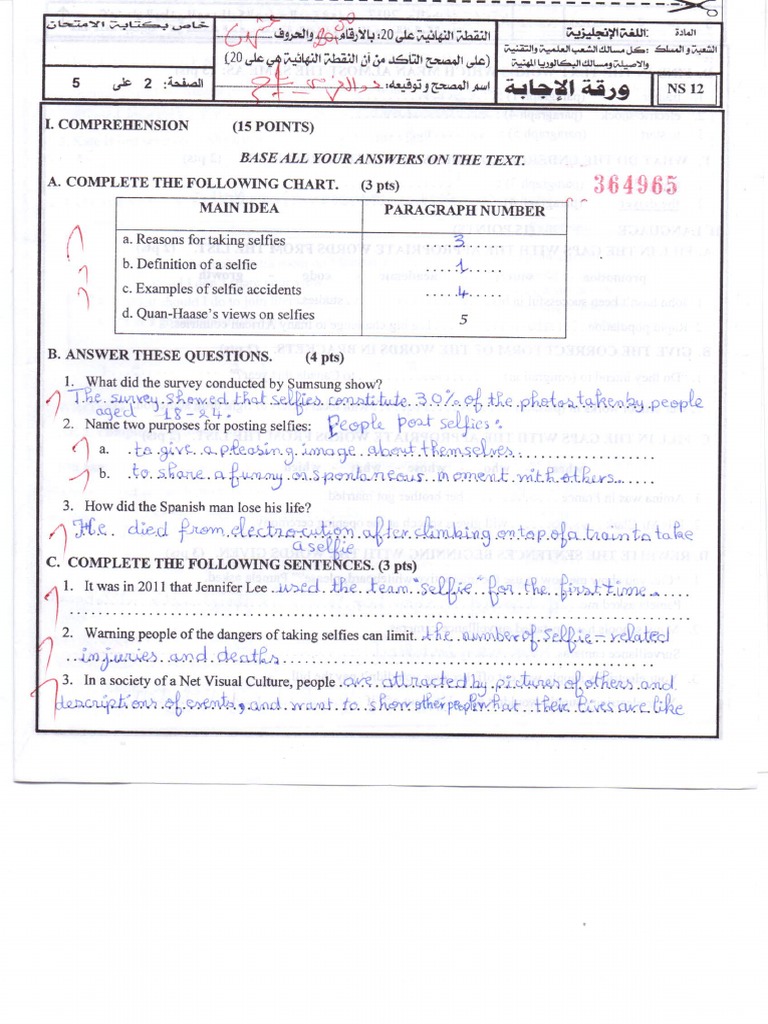 خاص بكتابة الامتحان
النقطة النهائية على 20: بالأرقام 20,00 والحروف عشرون
(على المصحح التأكد من أن النقطة النهائية هي على 20)
المادة :اللغة الإنجليزية
الشعبة و المسلك :كل مسالك الشعب العلمية والتقنية
والاصيلة ومسالك البكالوريا المهنية
الصفحة: 2 على 5
اسم المصحح وتوقيعه:
ورقة الإجابة
NS 12
I. COMPREHENSION (15 POINTS)
BASE ALL YOUR ANSWERS ON THE TEXT.
A. COMPLETE THE FOLLOWING CHART. (3 pts)
364965
MAIN IDEA PARAGRAPH NUMBER
a. Reasons for taking selfies 3
b. Definition of a selfie 1
c. Examples of selfie accidents 4
d. Quan-Haase's views on selfies 5
B. ANSWER THESE QUESTIONS. (4 pts)
1. What did the survey conducted by Sumsung show?
The survey showed that selfies constitute 30% of the photos taken by people
aged 18-24.
2. Name two purposes for posting selfies: People post selfies:
a. to give a pleasing image about themselves
b. to share a funny or spontaneous moment with others
3. How did the Spanish man lose his life?
He died from electrocution after climbing on top of a train to take
a selfie
C. COMPLETE THE FOLLOWING SENTENCES. (3 pts)
1. It was in 2011 that Jennifer Lee used the team "selfie" for the first time.
2. Warning people of the dangers of taking selfies can limit. the number of selfie-related
injuries and deaths
3. In a society of a Net Visual Culture, people are attracted by pictures of others and
descriptions of events, and want to show other people what their lives are like